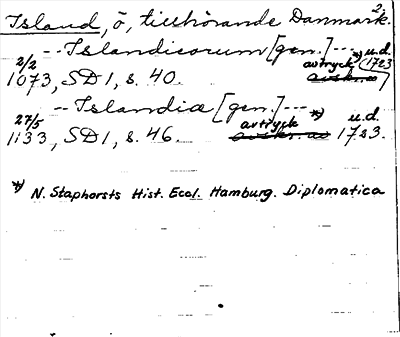 Island, ö, tillhörande Danmark. 2.
-- Islandicorum [gen.] --- *) u.d.
2/2 avtryck 1723
1073, SD 1, s. 40.
-- Islandia [gen.] --- *)
27/5 avtryck u.d.
1133, SD 1, s. 46. 1723.
*) N. Staphorsts Hist. Eccl. Hamburg. Diplomatica